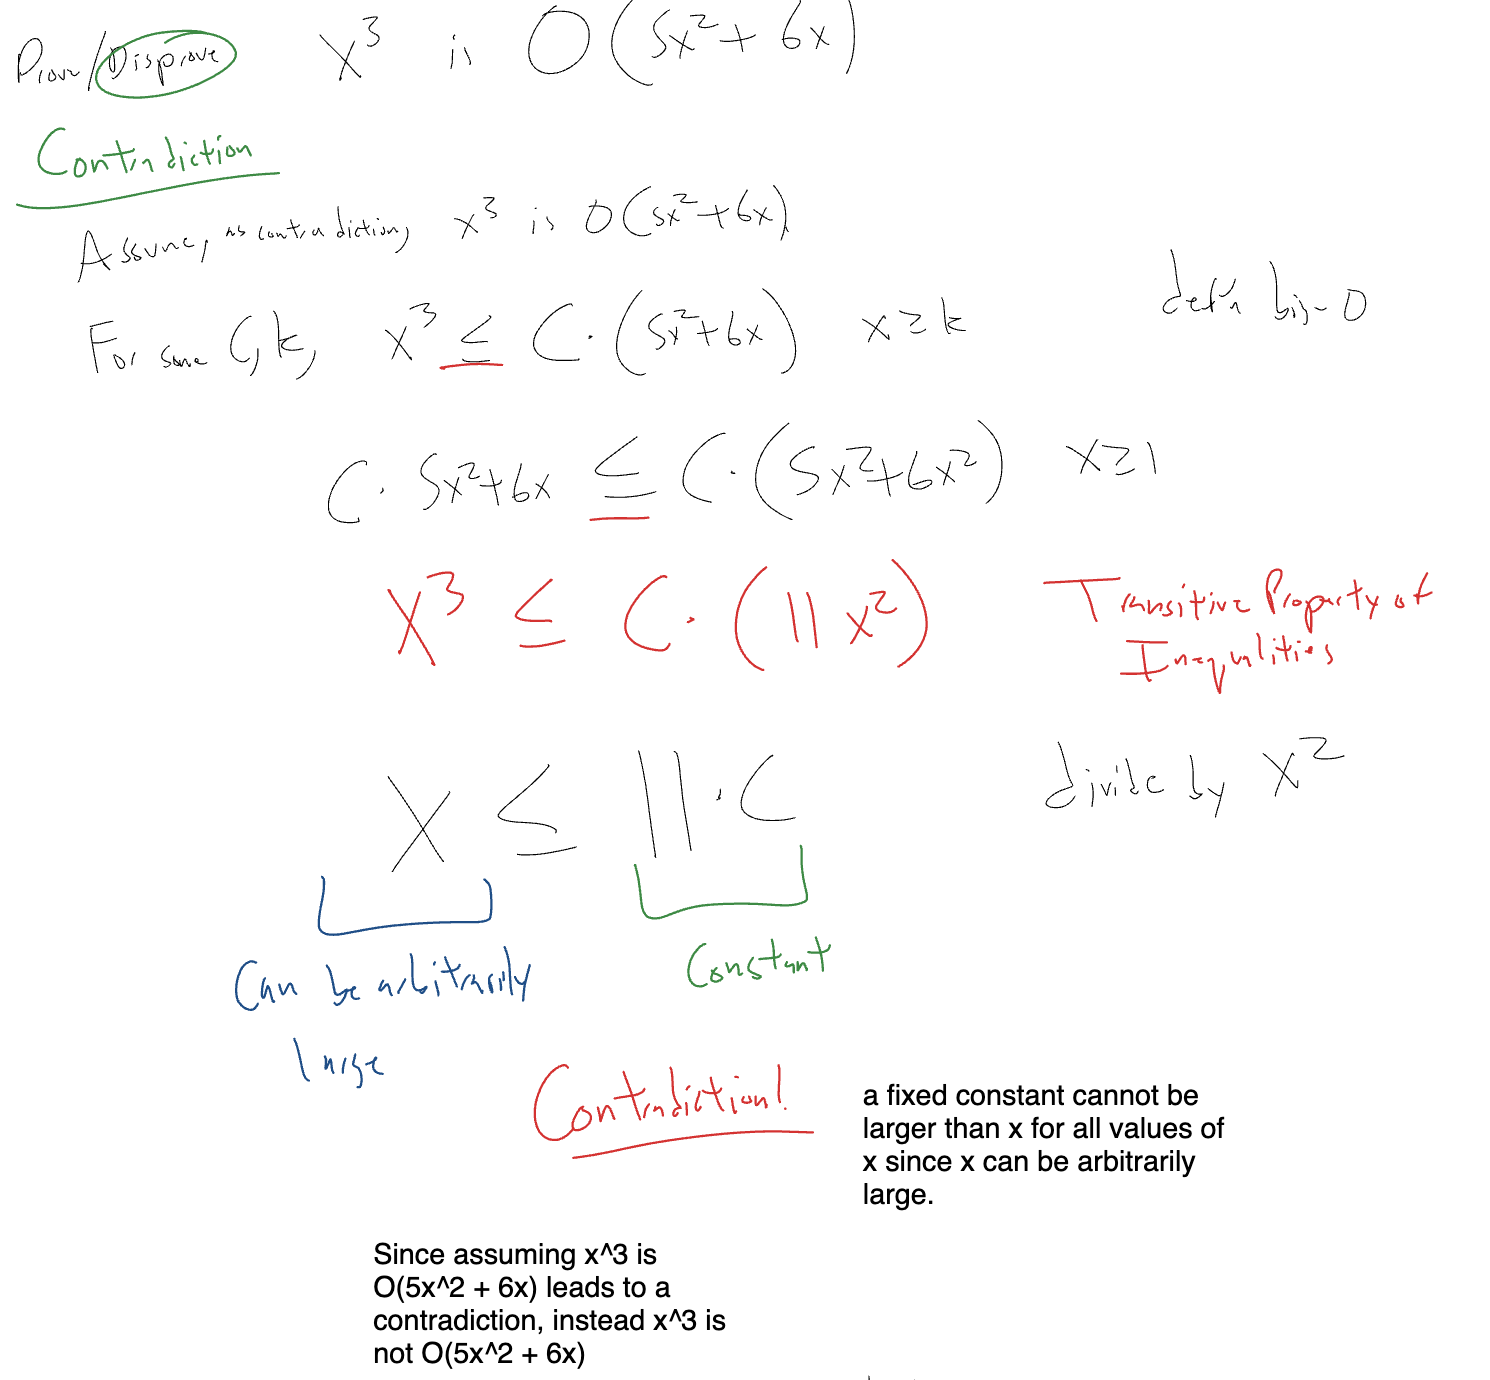 Prove/Disprove x³ is O(5x²+6x)
Contradiction
Assume, as contradiction, x³ is O(5x²+6x)
For some C,k, x³ ≤ C·(5x²+6x) x≥k defn big-O
C·5x²+6x ≤ C·(5x²+6x²) x≥1
x³ ≤ C·(11x²) Transitive Property of
Inequalities
x ≤ 11·C divide by x²
Can be arbitrarily
large
Constant
Contradiction!
a fixed constant cannot be
larger than x for all values of
x since x can be arbitrarily
large.
Since assuming x^3 is
O(5x^2 + 6x) leads to a
contradiction, instead x^3 is
not O(5x^2 + 6x)